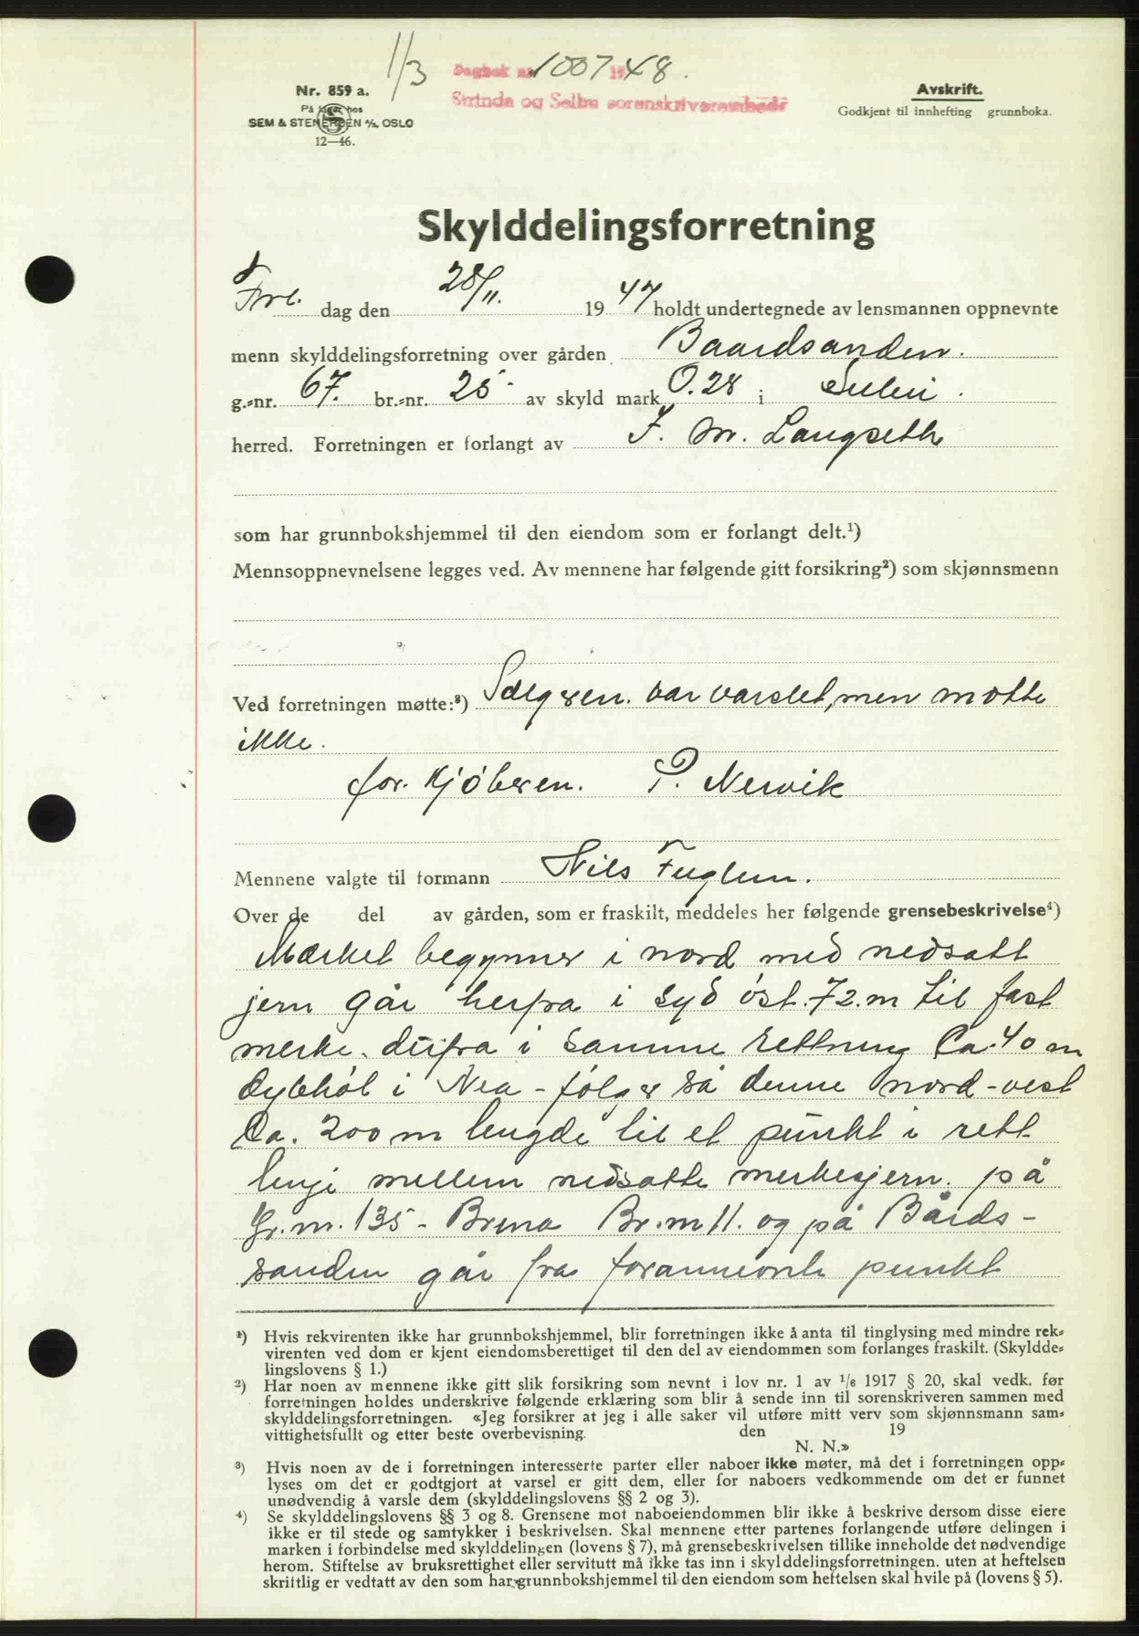 1/3
Dagbok nr. 1007 1948.
Strinda og Selbu sorenskriverembede
Nr. 859 a.
På lager hos
SEM & STENERSEN A/S, OSLO
12—46.
Avskrift.
Godkjent til innhefting grunnboka.
Skylddelingsforretning
Fre. dag den 28/11. 1947 holdt undertegnede av lensmannen oppnevnte
menn skylddelingsforretning over gården Baardsanden.
g.-nr. 67. br.-nr. 25 av skyld mark 0.28 i Selbu.
herred. Forretningen er forlangt av J. M. Langseth
som har grunnbokshjemmel til den eiendom som er forlangt delt.¹)
Mennsoppnevnelsene legges ved. Av mennene har følgende gitt forsikring²) som skjønnsmenn
Ved forretningen møtte:³) Sælgeren. var varslet, men møtte
ikke.
for. Kjöberen. P. Nervik
Mennene valgte til formann Nils Fuglem.
Over de del av gården, som er fraskilt, meddeles her følgende grensebeskrivelse⁴)
Mærket begynner i nord med nedsatt
jern går herfra i syd öst. 72. m til fast
merke. derfra i samme rettning Ca. 40 m
dybhöl i Nea - følger så denne nord-vest
Ca. 200 m lengde til et punkt i rett
linje mellem nedsatte merkesjern. på
Gr. nr. 135 - Brena Br. nr 11. og på Bårds-
sanden går fra forannevnte punkt
¹) Hvis rekvirenten ikke har grunnbokshjemmel, blir forretningen ikke å anta til tinglysing med mindre rek-
virenten ved dom er kjent eiendomsberettiget til den del av eiendommen som forlanges fraskilt. (Skyldde-
lingslovens § 1.)
²) Har noen av mennene ikke gitt slik forsikring som nevnt i lov nr. 1 av 1/6 1917 § 20, skal vedk. før
forretningen holdes underskrive følgende erklæring som blir å sende inn til sorenskriveren sammen med
skylddelingsforretningen. «Jeg forsikrer at jeg i alle saker vil utføre mitt verv som skjønnsmann sam-
vittighetsfullt og etter beste overbevisning. den 19
N. N.»
³) Hvis noen av de i forretningen interesserte parter eller naboer ikke møter, må det i forretningen opp-
lyses om det er godtgjort at varsel er gitt dem, eller for naboers vedkommende om det er funnet
unødvendig å varsle dem (skylddelingslovens §§ 2 og 3).
⁴) Se skylddelingslovens §§ 3 og 8. Grensene mot naboeiendommen blir ikke å beskrive dersom disse eiere
ikke er til stede og samtykker i beskrivelsen. Skal mennene etter partenes forlangende utføre delingen i
marken i forbindelse med skylddelingen (lovens § 7), må grensebeskrivelsen tillike inneholde det nødvendige
herom. Stiftelse av bruksrettighet eller servitutt må ikke tas inn i skylddelingsforretningen. uten at heftelsen
skriftlig er vedtatt av den som har grunnbokshjemmel til den eiendom som heftelsen skal hvile på (lovens § 5).